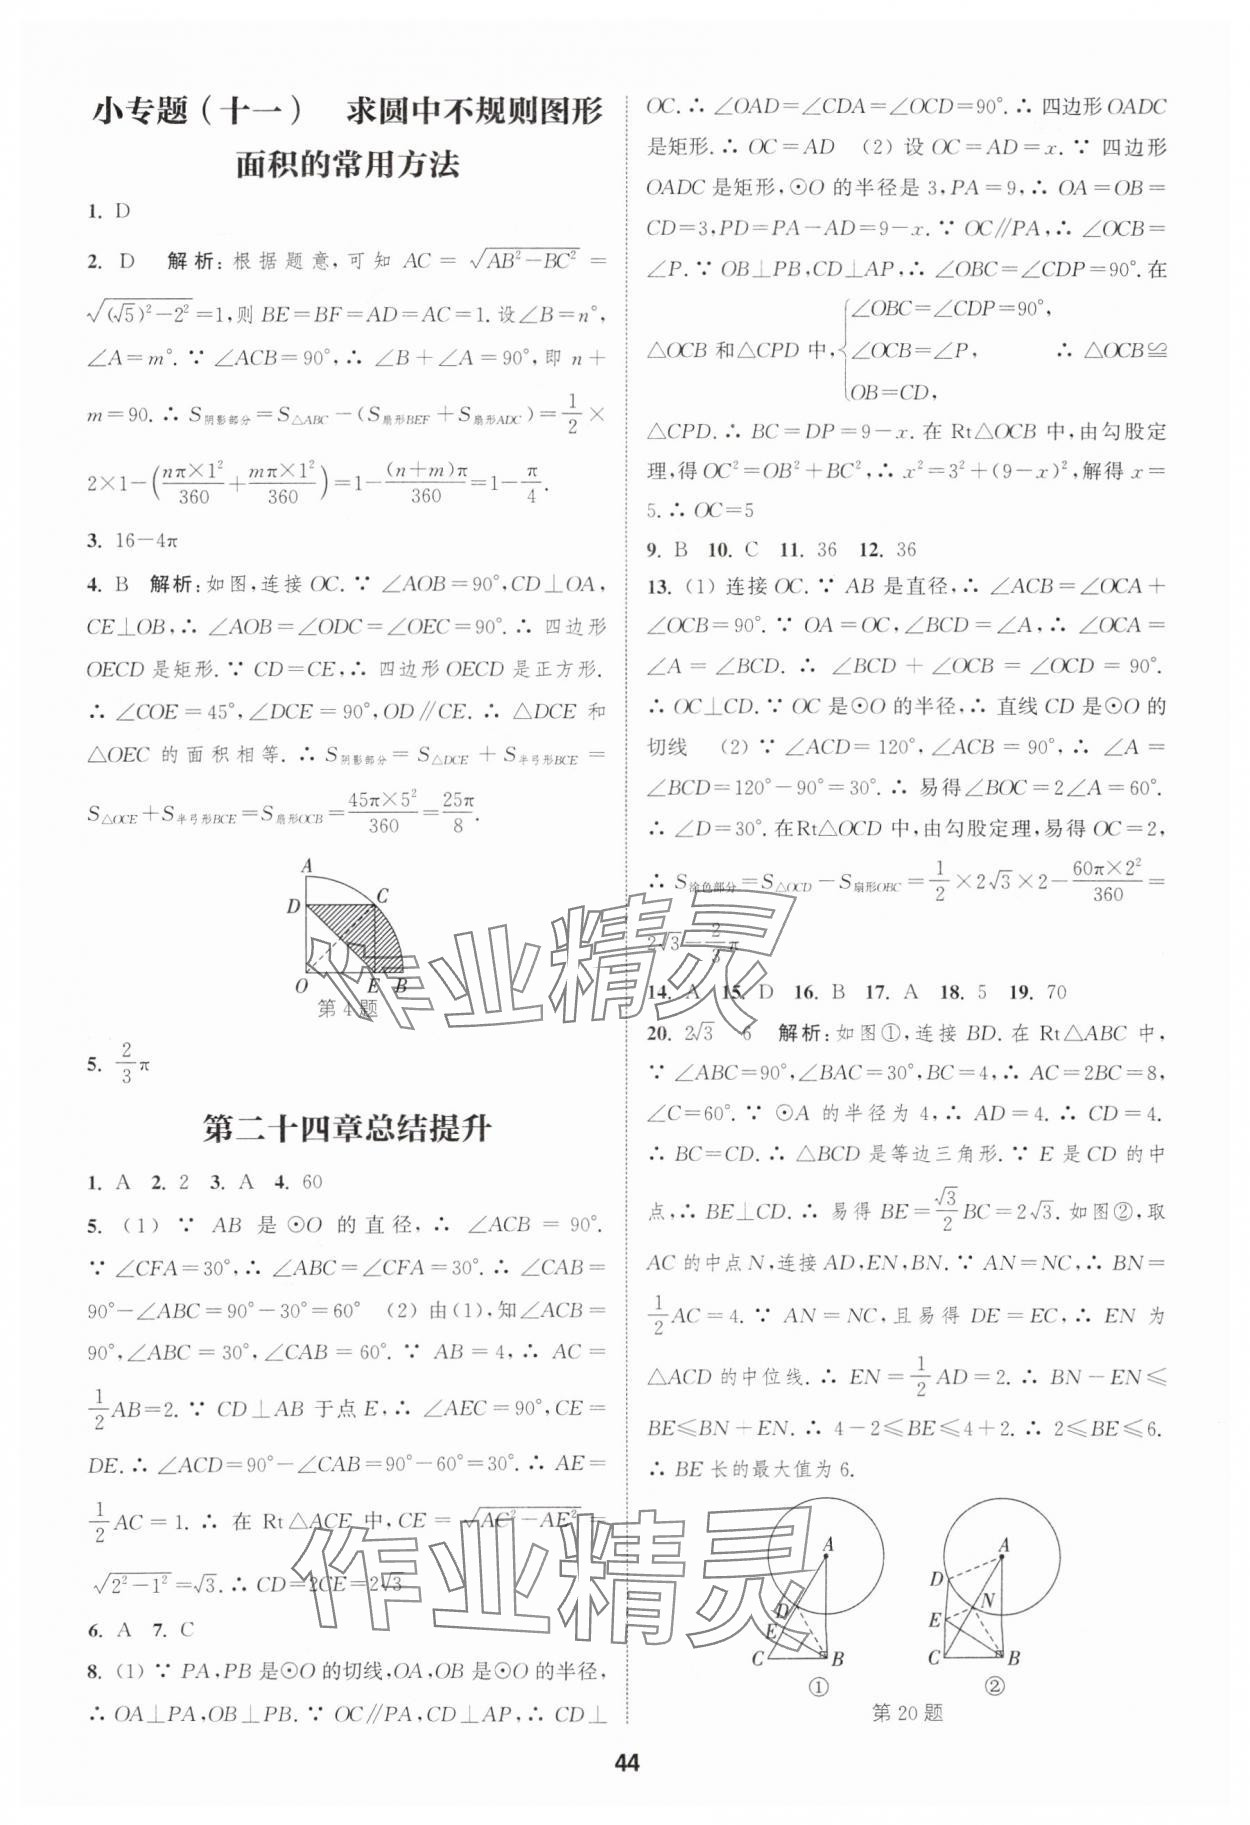 小专题（十一）　求圆中不规则图形
面积的常用方法
1. D
2. D　解析：根据题意，可知 AC = √(AB²−BC²) =
√((√5)²−2²) =1，则 BE=BF=AD=AC=1. 设∠B=n°，
∠A=m°. ∵ ∠ACB=90°，∴ ∠B+∠A=90°，即 n+
m=90. ∴ S阴影部分=S△ABC−(S扇形BEF+S扇形ADC)=1/2×
2×1−(nπ×1²/360+mπ×1²/360)=1−(n+m)π/360=1−π/4.
3. 16−4π
4. B　解析：如图，连接 OC. ∵ ∠AOB=90°，CD⊥OA，
CE⊥OB，∴ ∠AOB=∠ODC=∠OEC=90°. ∴ 四边形
OECD 是矩形. ∵ CD=CE，∴ 四边形 OECD 是正方形.
∴ ∠COE=45°，∠DCE=90°，OD∥CE. ∴ △DCE 和
△OEC 的面积相等. ∴ S阴影部分=S△DCE+S半弓形BCE=
S△OCE+S半弓形BCE=S扇形OCB=45π×5²/360=25π/8.
A
D C
O E B
第 4 题
5. 2/3 π
第二十四章总结提升
1. A　2. 2　3. A　4. 60
5. (1) ∵ AB 是⊙O 的直径，∴ ∠ACB=90°.
∵ ∠CFA=30°，∴ ∠ABC=∠CFA=30°. ∴ ∠CAB=
90°−∠ABC=90°−30°=60°　(2) 由(1)，知∠ACB=
90°，∠ABC=30°，∠CAB=60°. ∵ AB=4，∴ AC=
1/2 AB=2. ∵ CD⊥AB 于点 E，∴ ∠AEC=90°，CE=
DE. ∴ ∠ACD=90°−∠CAB=90°−60°=30°. ∴ AE=
1/2 AC=1. ∴ 在 Rt△ACE 中，CE=√(AC²−AE²)=
√(2²−1²)=√3. ∴ CD=2CE=2√3
6. A　7. C
8. (1) ∵ PA，PB 是⊙O 的切线，OA，OB 是⊙O 的半径，
∴ OA⊥PA，OB⊥PB. ∵ OC∥PA，CD⊥AP，∴ CD⊥
OC. ∴ ∠OAD=∠CDA=∠OCD=90°. ∴ 四边形 OADC
是矩形. ∴ OC=AD　(2) 设 OC=AD=x. ∵ 四边形
OADC 是矩形，⊙O 的半径是 3，PA=9，∴ OA=OB=
CD=3，PD=PA−AD=9−x. ∵ OC∥PA，∴ ∠OCB=
∠P. ∵ OB⊥PB，CD⊥AP，∴ ∠OBC=∠CDP=90°. 在
∠OBC=∠CDP=90°，
△OCB 和△CPD 中，{∠OCB=∠P，　∴ △OCB≌
OB=CD，
△CPD. ∴ BC=DP=9−x. 在 Rt△OCB 中，由勾股定
理，得 OC²=OB²+BC²，∴ x²=3²+(9−x)²，解得 x=
5. ∴ OC=5
9. B　10. C　11. 36　12. 36
13. (1) 连接 OC. ∵ AB 是直径，∴ ∠ACB=∠OCA+
∠OCB=90°. ∵ OA=OC，∠BCD=∠A，∴ ∠OCA=
∠A=∠BCD. ∴ ∠BCD+∠OCB=∠OCD=90°.
∴ OC⊥CD. ∵ OC 是⊙O 的半径，∴ 直线 CD 是⊙O 的
切线　(2) ∵ ∠ACD=120°，∠ACB=90°，∴ ∠A=
∠BCD=120°−90°=30°. ∴ 易得∠BOC=2∠A=60°.
∴ ∠D=30°. 在Rt△OCD 中，由勾股定理，易得 OC=2，
∴ S涂色部分=S△OCD−S扇形OBC=1/2×2√3×2−60π×2²/360=
2√3−2/3 π
14. A　15. D　16. B　17. A　18. 5　19. 70
20. 2√3　6　解析：如图①，连接 BD. 在 Rt△ABC 中，
∵ ∠ABC=90°，∠BAC=30°，BC=4，∴ AC=2BC=8，
∠C=60°. ∵ ⊙A 的半径为 4，∴ AD=4. ∴ CD=4.
∴ BC=CD. ∴ △BCD 是等边三角形. ∵ E 是 CD 的中
点，∴ BE⊥CD. ∴ 易得 BE=√3/2 BC=2√3. 如图②，取
AC 的中点 N，连接 AD，EN，BN. ∵ AN=NC，∴ BN=
1/2 AC=4. ∵ AN=NC，且易得 DE=EC，∴ EN 为
△ACD 的中位线. ∴ EN=1/2 AD=2. ∴ BN−EN≤
BE≤BN+EN. ∴ 4−2≤BE≤4+2. ∴ 2≤BE≤6.
∴ BE 长的最大值为 6.
A
D
E
C B
①
A
D
N
E
C B
②
第 20 题
44
作业精灵
作业精灵